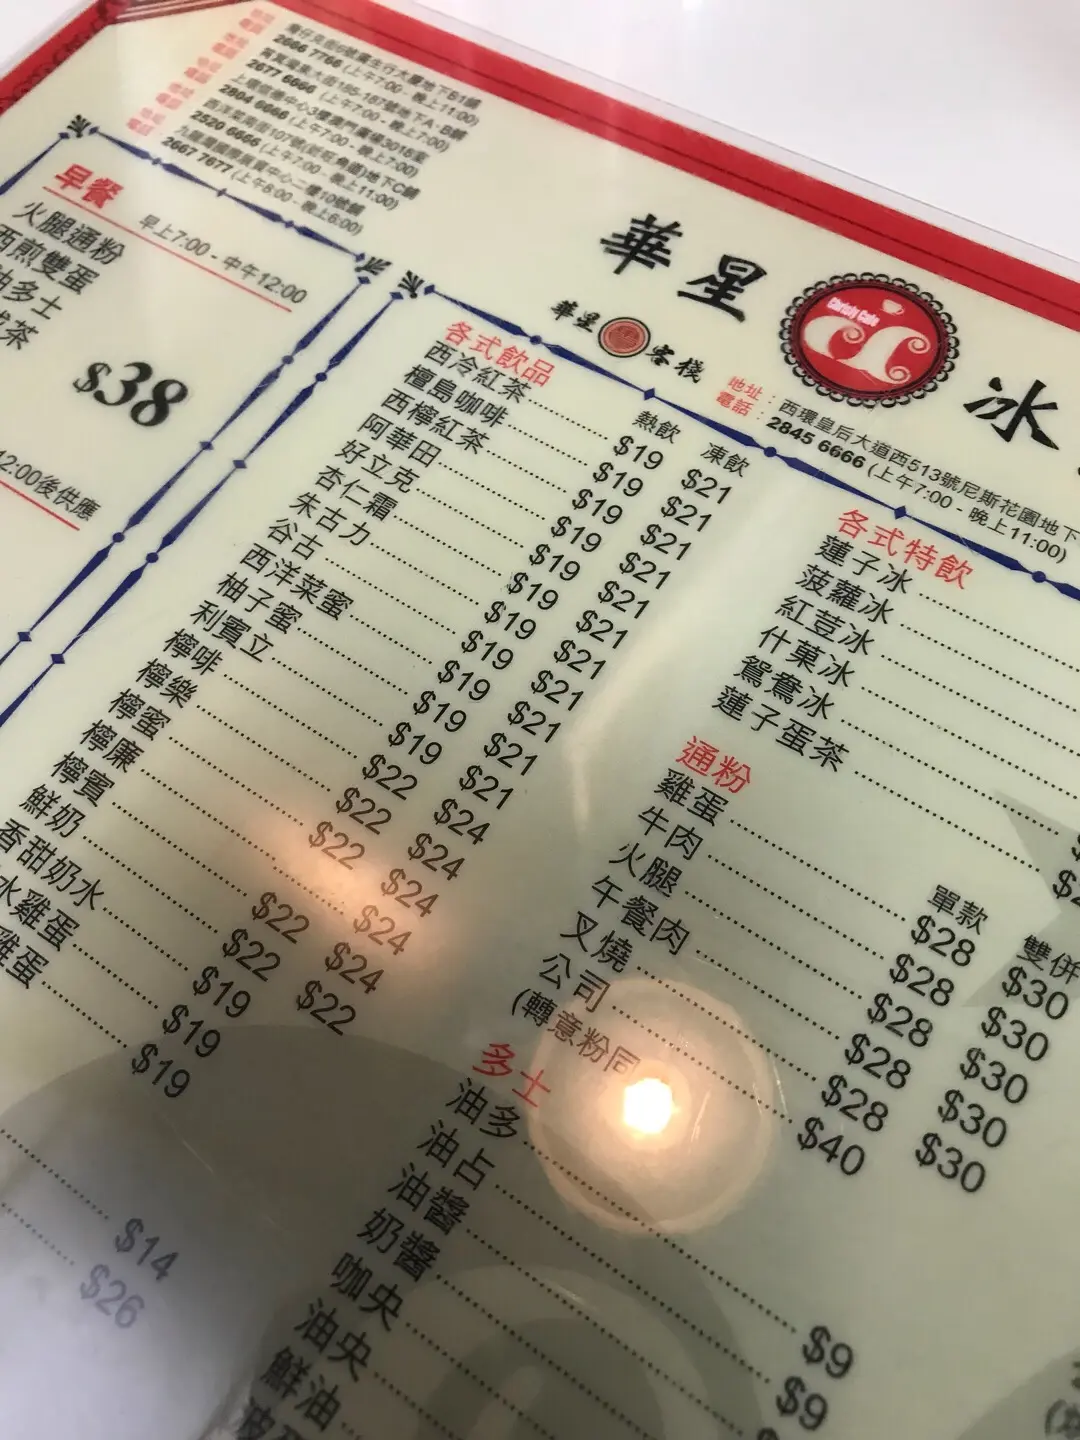 2666 7766 (上午7:00 - 晚上11:00)
2677 6666 (上午7:00 - 晚上7:00)
2804 6666 (上午7:00 - 晚上7:00)
2520 6666 (上午7:00 - 晚上11:00)
九龍灣國際展貿中心二樓10號舖
2667 7677 (上午8:00 - 晚上6:00)
早餐 早上7:00 - 中午12:00
火腿通粉
西煎雙蛋
油多士
茶
$38
12:00後供應
華星 冰
Christy Cafe
華星 客棧
地址：西環皇后大道西513號尼斯花園地下
電話：2845 6666 (上午7:00 - 晚上11:00)
各式飲品 熱飲 凍飲
西冷紅茶 $19 $21
檀島咖啡 $19 $21
西檸紅茶 $19 $21
阿華田 $19 $21
好立克 $19 $21
杏仁霜 $19 $21
朱古力 $19 $21
谷古 $19 $21
西洋菜蜜 $19 $21
柚子蜜 $19 $21
利賓立 $19 $21
檸啡 $22 $24
檸樂 $22 $24
檸蜜 $22 $24
檸廉 $24
檸賓 $22 $24
鮮奶 $22 $22
香甜奶水 $19
水雞蛋 $19
雞蛋 $19
$14
$26
各式特飲
蓮子冰
菠蘿冰
紅荳冰
什菓冰
鴛鴦冰
蓮子蛋茶
通粉 單款 雙併
雞蛋 $28 $30
牛肉 $28 $30
火腿 $28 $30
午餐肉 $28 $30
叉燒 $28 $30
公司 $40
(轉意粉同
多士
油多 $9
油占 $9
油醬
奶醬
咖央
油央
鮮油